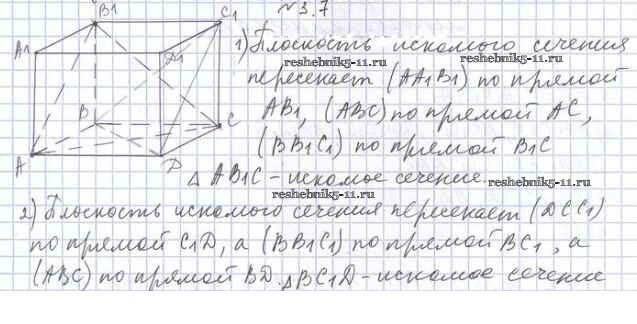 №3.7
B1
C1
A1
D1
B
C
A
D
1) Плоскость искомого сечения
reshebnik5-11.ru
reshebnik5-11.ru
пересекает (AA1B1) по прямой
AB1, (ABC) по прямой AC,
reshebnik5-11.ru
(BB1C1) по прямой B1C
△ AB1C – искомое сечение
reshebnik5-11.ru
reshebnik5-11.ru
2) Плоскость искомого сечения пересекает (DCC1)
по прямой C1D, а (BB1C1) по прямой BC1, а
(ABC) по прямой BD. △BC1D – искомое сечение